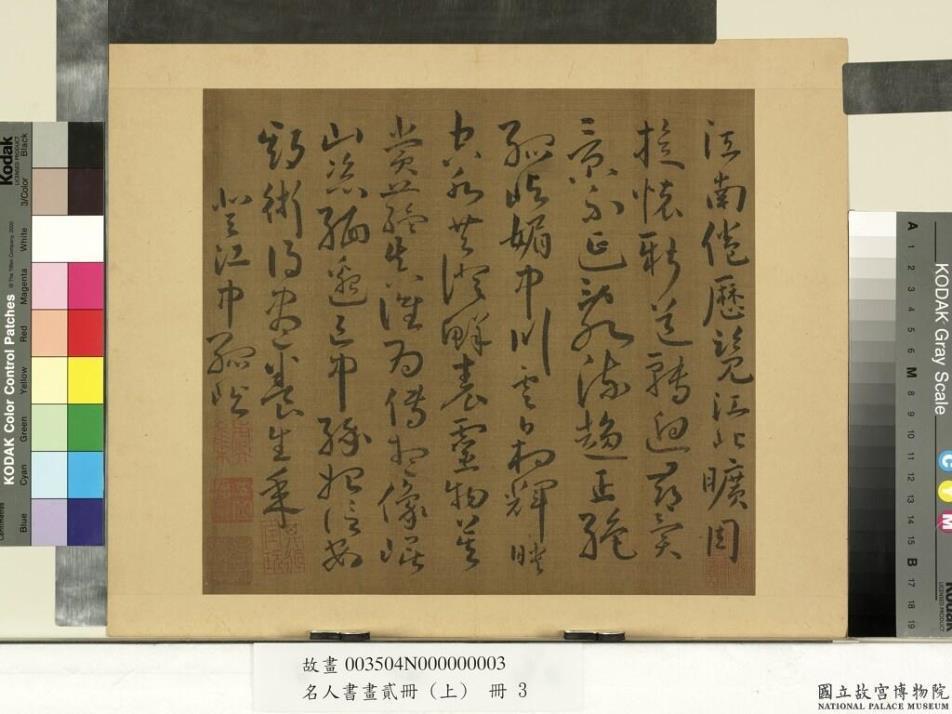 江南倦歷覽江北曠周
旋懷新道轉迥尋異
景不延亂流趨正絕
孤嶼媚中川雲日相輝映
空水共澄鮮表靈物莫
賞蘊真誰為傳想像崐
山姿緬邈區中緣始信安
期術得盡養生年
登江中孤嶼
故畫 003504N000000003
名人書畫貳冊（上） 冊 3
國立故宮博物院
NATIONAL PALACE MUSEUM
Kodak
LICENSED PRODUCT
© The Tiffen Company, 2000
KODAK Color Control Patches
Blue Cyan Green Yellow Red Magenta White 3/Color Black
KODAK Gray Scale
A 1 2 3 4 5 6 M 8 9 10 11 12 13 14 15 B 17 18 19
C Y M